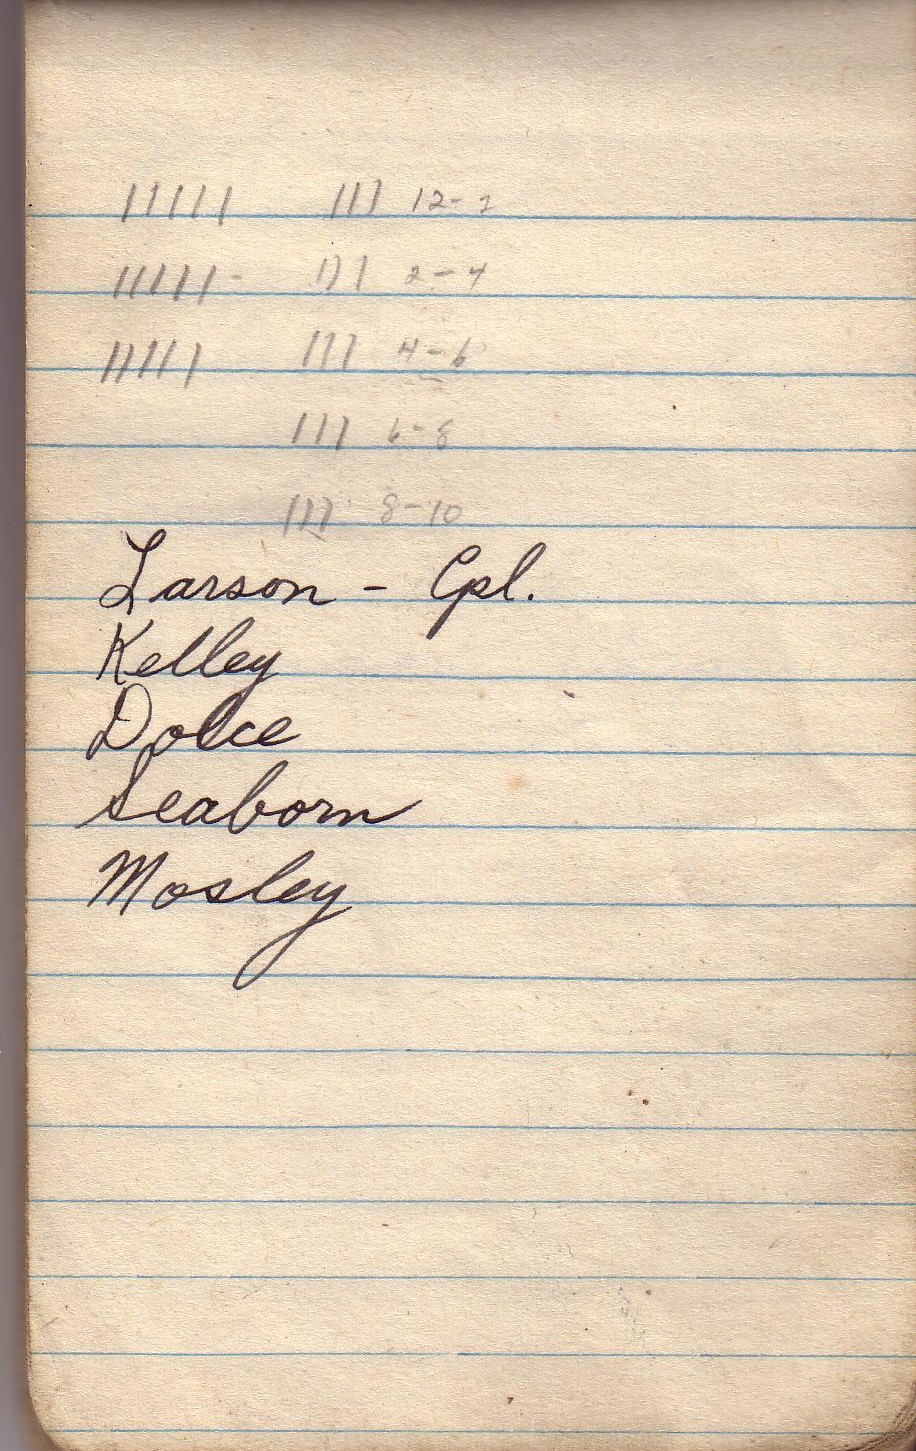 ||||| ||| 12-2
||||| - ||| 2-4
||||| ||| 4-6
||| 6-8
||| 8-10
Larson - Cpl.
Kelley
Dolce
Seaborn
Mosley